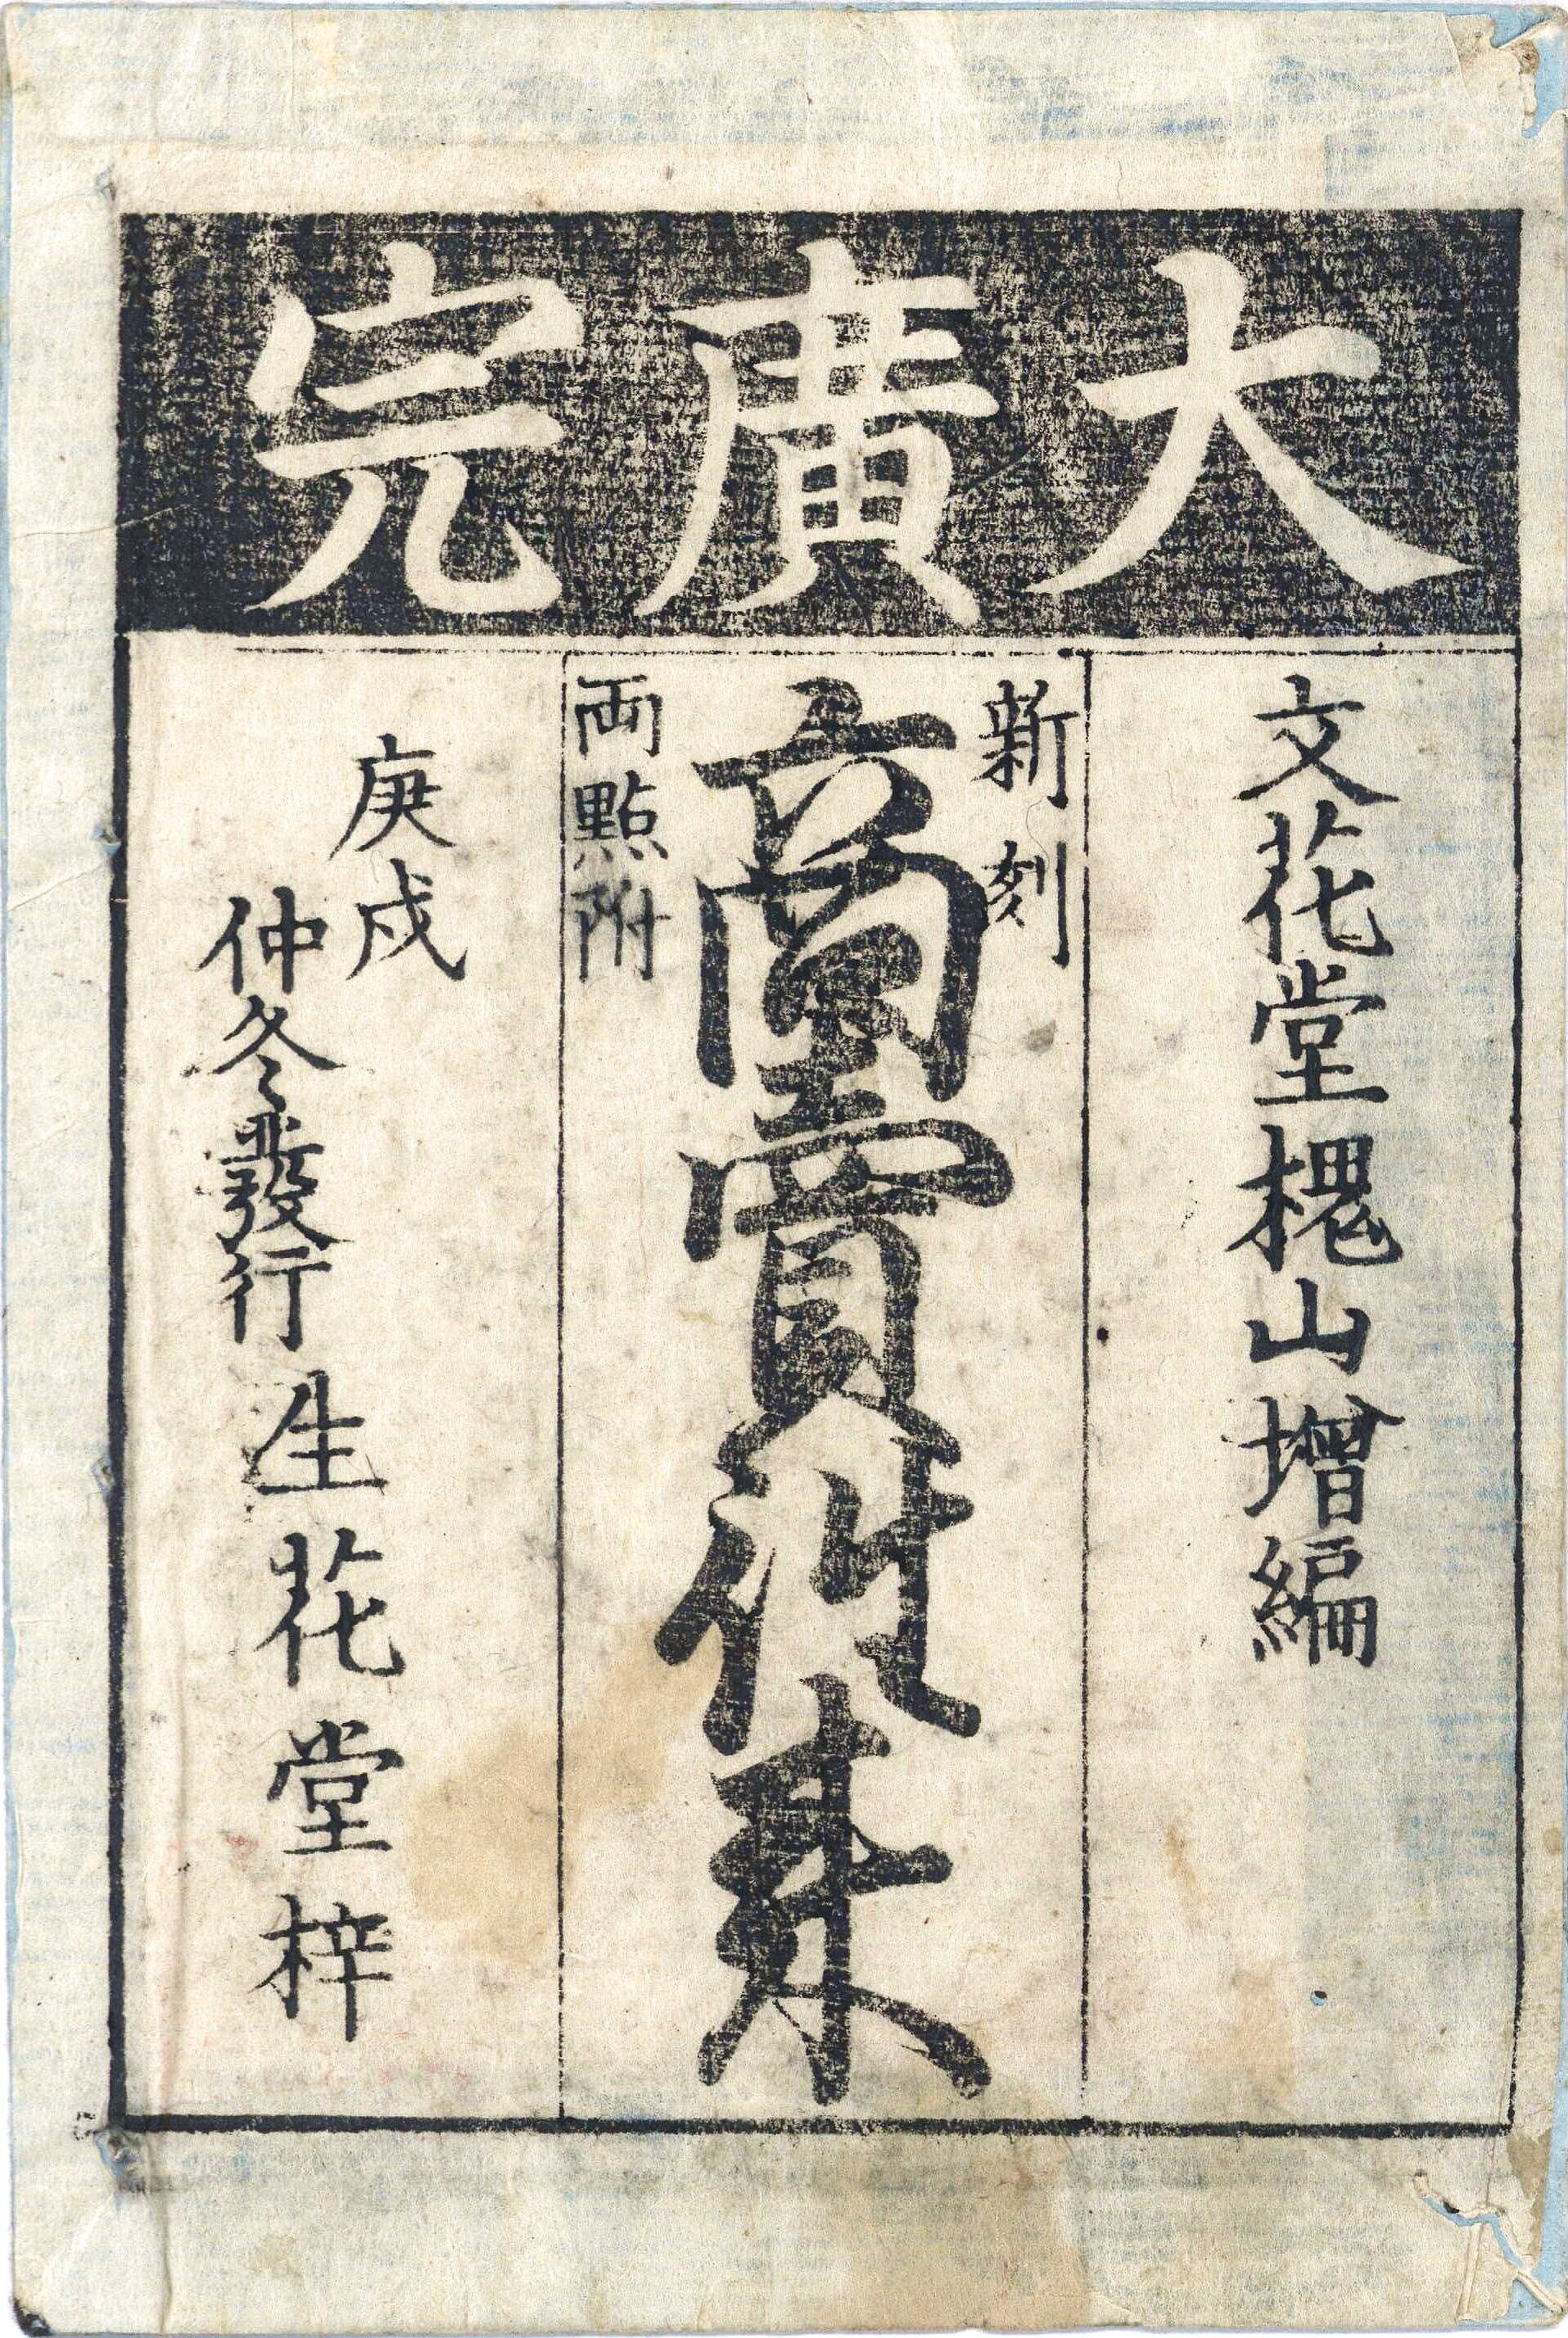 大廣完
文花堂槐山增編
新刻
商賣徃来
両點附
庚戌
仲冬發行
生花堂梓